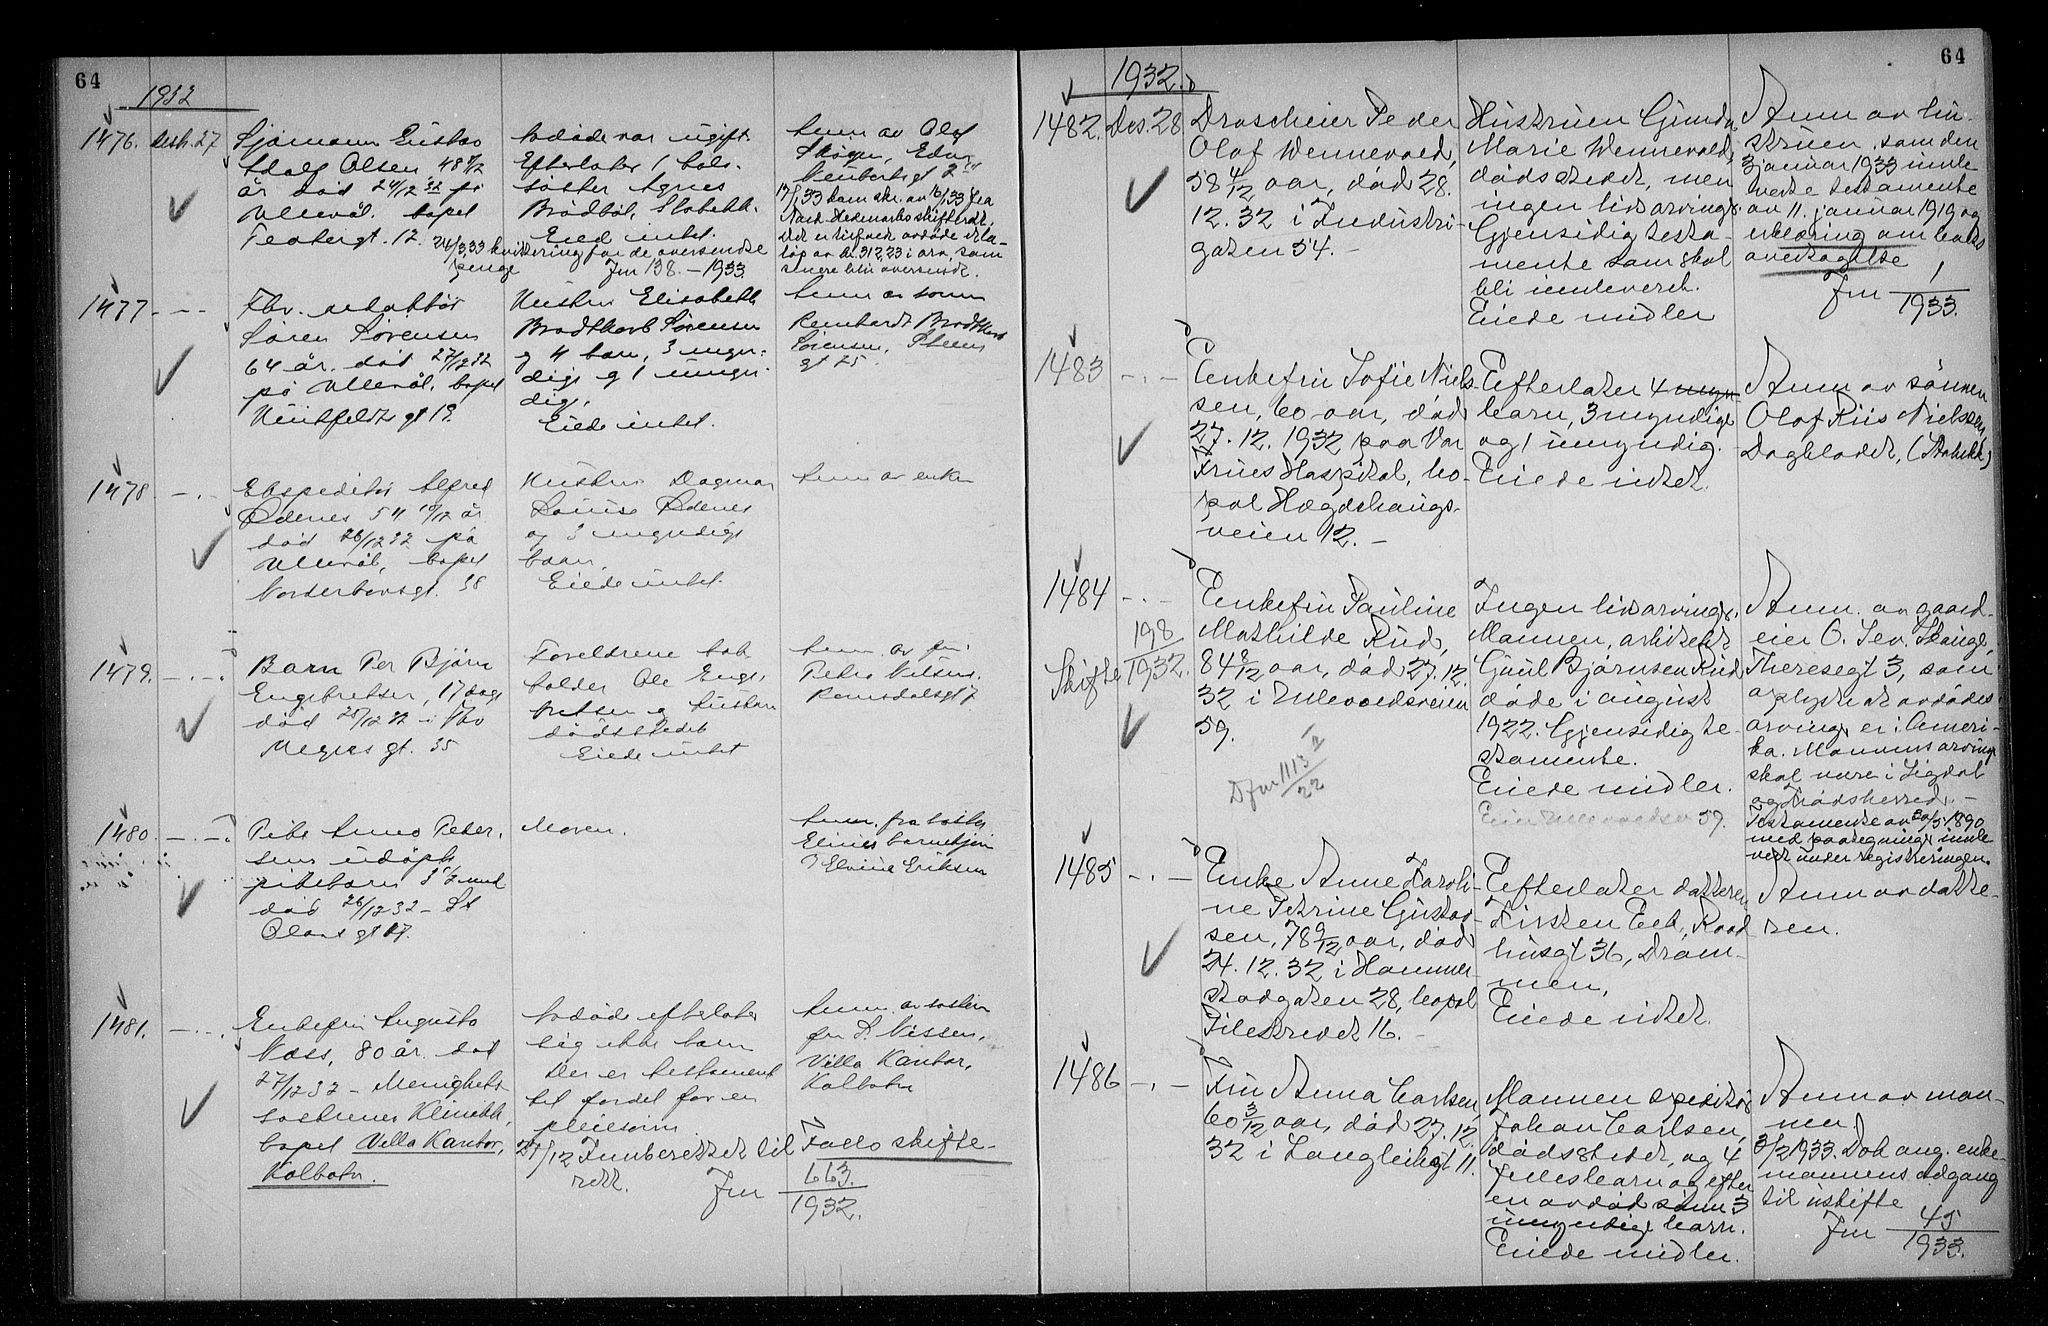 64
1932
1476. Desb. 27
Sjömann Gustav
Adolf Olsen, 48 7/12
år död 24/12 32 på
Ullevål. bopel
Teatergt. 12.
Avdöde var ugift.
Efterlater 1 halv-
söster Agnes
Brödböl, Stabekk.
Eied intet.
24/3 33 kvittering for de oversendte
penge Jnr 138. – 1933
Anm. av Olaf
Skogen, Edv.
17/1 33 kom skr. av 16/1 33 fra
Nord-Hedmark skifterett,
det er tilfaldt avdöde et be-
löp av kr. 312,23 i arv, som
senere blir oversendt.
1477 – · –
Fhv. redaktör
Sören Sörensen
64 år. död 27/12 32
på Ullevål. bopel
Huitfeldts gt 19.
Hustru Elisabeth
Brodtkorb Sörensen
og 4 barn, 3 myn-
dige og 1 umyn-
dig.
Eiede intet.
Anm av sönn
Reinhardt Brodtkorb
Sörensen, Steens
gt 25.
1478 – · –
Ekspeditör Alfred
Ödenes 54 10/12 år
död 26/12 32 på
Ullevål, bopel
Vardeborggt. 38
Hustru Dagmar
Louise Ödenes
og 3 myndige
barn.
Eiede intet.
Anm av enken
1479. – · –
Barn Per Björn
Engebretsen, 17 dage
död 25/12 32 i Thv
Meyers gt. 35
Foreldrene bok-
holder Ole Enge-
bretsen og hustru
dödsstedet
Eiede intet
Anm av fru
Petra Nilsen.
Romsdalsgt 7
1480. – · –
Pike Anna Peter-
sens udöpte
pikebarn 3 1/2 mnd
död 26/12 32 – St
Olavs gt 17.
Moren.
Anm. fra söster
Elines barnehjem
v Elvine Eriksen
1481. – · –
Enkefru Augusta
Næss, 80 år. död
27/12 32 – Menighets
söstrenes Klinikk,
bopel Villa Kantor,
Kolbotn.
Avdöde efterlater
sig ikke barn
Der er testament
til fordel for en
pleiesönn.
27/12 Innberettet til Follo skifte-
rett. Jnr 663.
1932.
Anm. av söster
fru S. Nissen,
Villa Kantor,
Kolbotn
64
1932.
1482. Des. 28
Droscheier Peder
Olaf Wennevold,
58 4/12 aar, död 28.
12. 32 i Industri-
gaten 54. –
Hustruen Gunda
Marie Wennevold,
dödsstedet, men
ingen livsarvinger.
Gjensidig testa-
mente som skal
bli innlevert.
Eiede midler
Anm av hu-
struen, som den
3 januar 1933 innle-
verte testamente
av 11. januar 1919 og
erklæring om boets
overtagelse
Jnr 1
1933.
1483 – · –
Enkefru Sofie Niels-
sen, 60 aar, död
27. 12. 1932 paa Vor
Frues Hospital, bo-
pæl Hægdehaugs-
veien 12. –
Efterlater 4 myn
barn, 3 myndige
og 1 umyndig.
Eiede intet.
Anm av sönnen
Olaf Riis Nielssen,
Dagbladet, (Stabekk)
1484 – · –
198
Skifte 1932.
Enkefru Pauline
Mathilde Ruud,
84 8/12 aar, död 27. 12.
32 i Ullevoldsveien
59.
Dfnr 1113 I
22
Ingen livsarvinger.
Mannen, arkitekt
Gaul Björnsen Ruud
döde i august
1922. Gjensidig te-
stamente.
Eiede midler.
Eier Ullevoldsv 59.
Anm. av gaard-
eier O. Sev. Skauge,
Theresegt 3, som
oplyste at avdödes
arvinger er i Ameri-
ka. Mannens arvinger
skal være i Sigdal
og Krödsherred. –
Testamente av 20/5 1890
med paategninger innle-
vert under registreringen.
1485 – · –
Enke Anne Karoli-
ne Petrine Gustav-
sen, 78 9/12 aar, död
24. 12. 32 i Hammer-
stadgaten 28, bopæl
Pilestredet 16. –
Efterlater datteren
Kirsten Eek, Raad-
husgt 36, Dram-
men,
Eiede intet.
Anm av datte-
ren.
1486 – · –
Fru Anna Carlsen,
60 3/12 aar, död 27. 12.
32 i Langleikgt 11.
Mannen speditör
Johan Carlsen,
dödsstedet, og 4
fellesbarn og efter
en avdöd sönn 3
umyndige barn.
Eiede midler.
Anm av man-
nen
3/2 1933. Dok ang. enke-
mannens adgang
til uskifte
Jnr 45
1933.